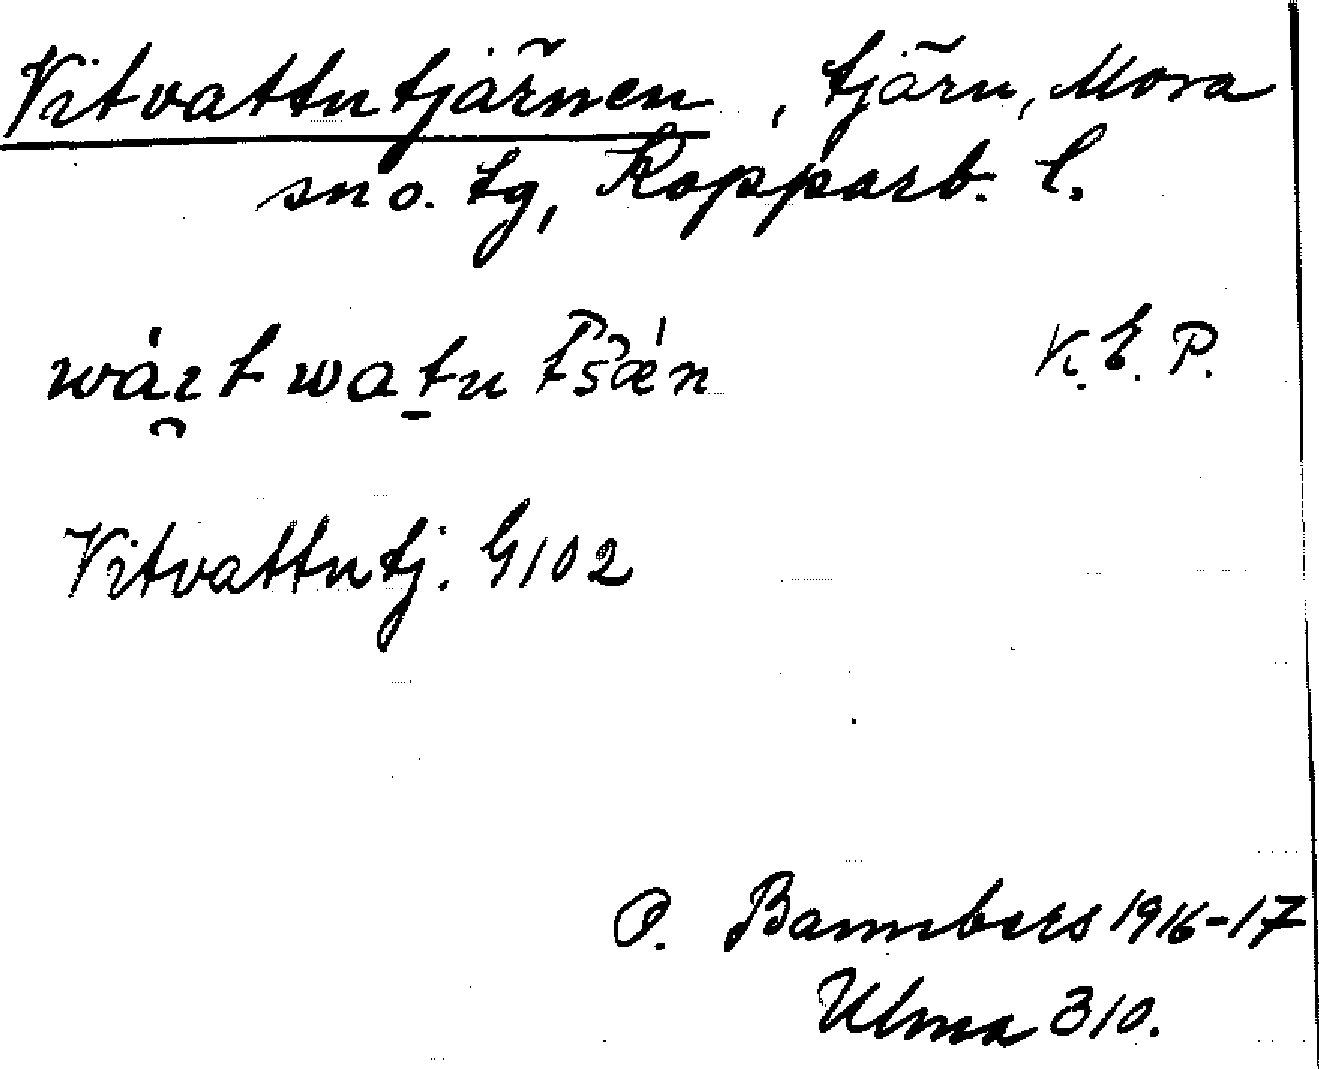 Vitvattutjärnen, tjärn, Mora
sn o. tg, Kopparb. l.
K. E. P.
Vitvattutj. G102
O. Bannbers 1916-17
Ulma 310.